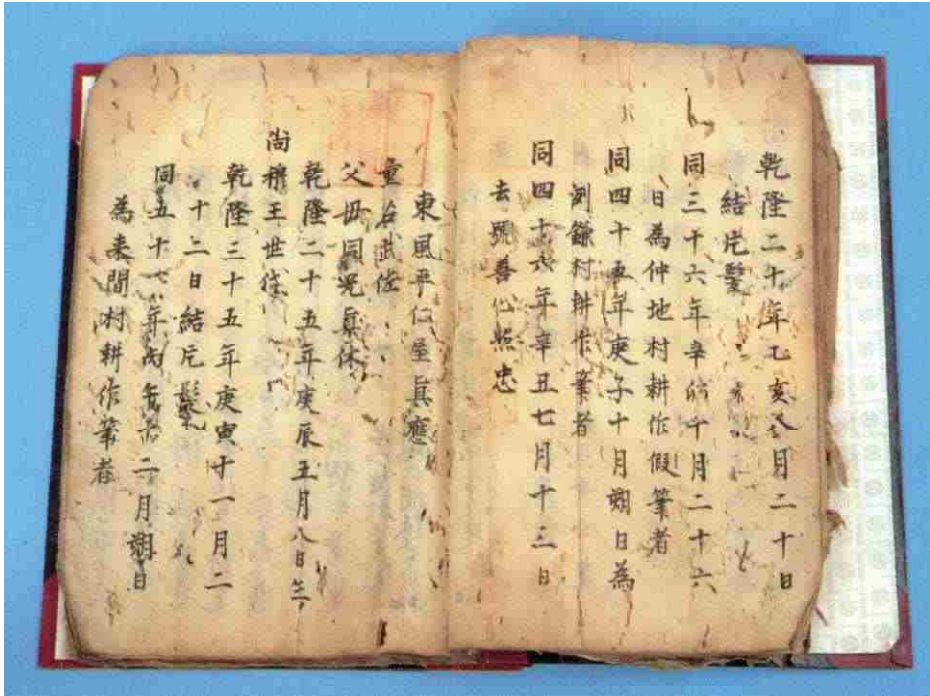 乾隆二十年乙亥八月二十日
結片髮
同三十六年辛卯十月二十六
日為仲地村耕作假筆者
同四十五年庚子十月朔日為
洌鎌村耕作筆者
同四十六年辛丑七月十三日
去號善心照忠
東風平仁屋真應
童名武佐
父毋同兄真休
乾隆二十五年庚辰五月八日生
尚穆王世代
乾隆三十五年庚寅十一月二
十二日結片髮
同五十年二月朔日
為来間村耕作筆者